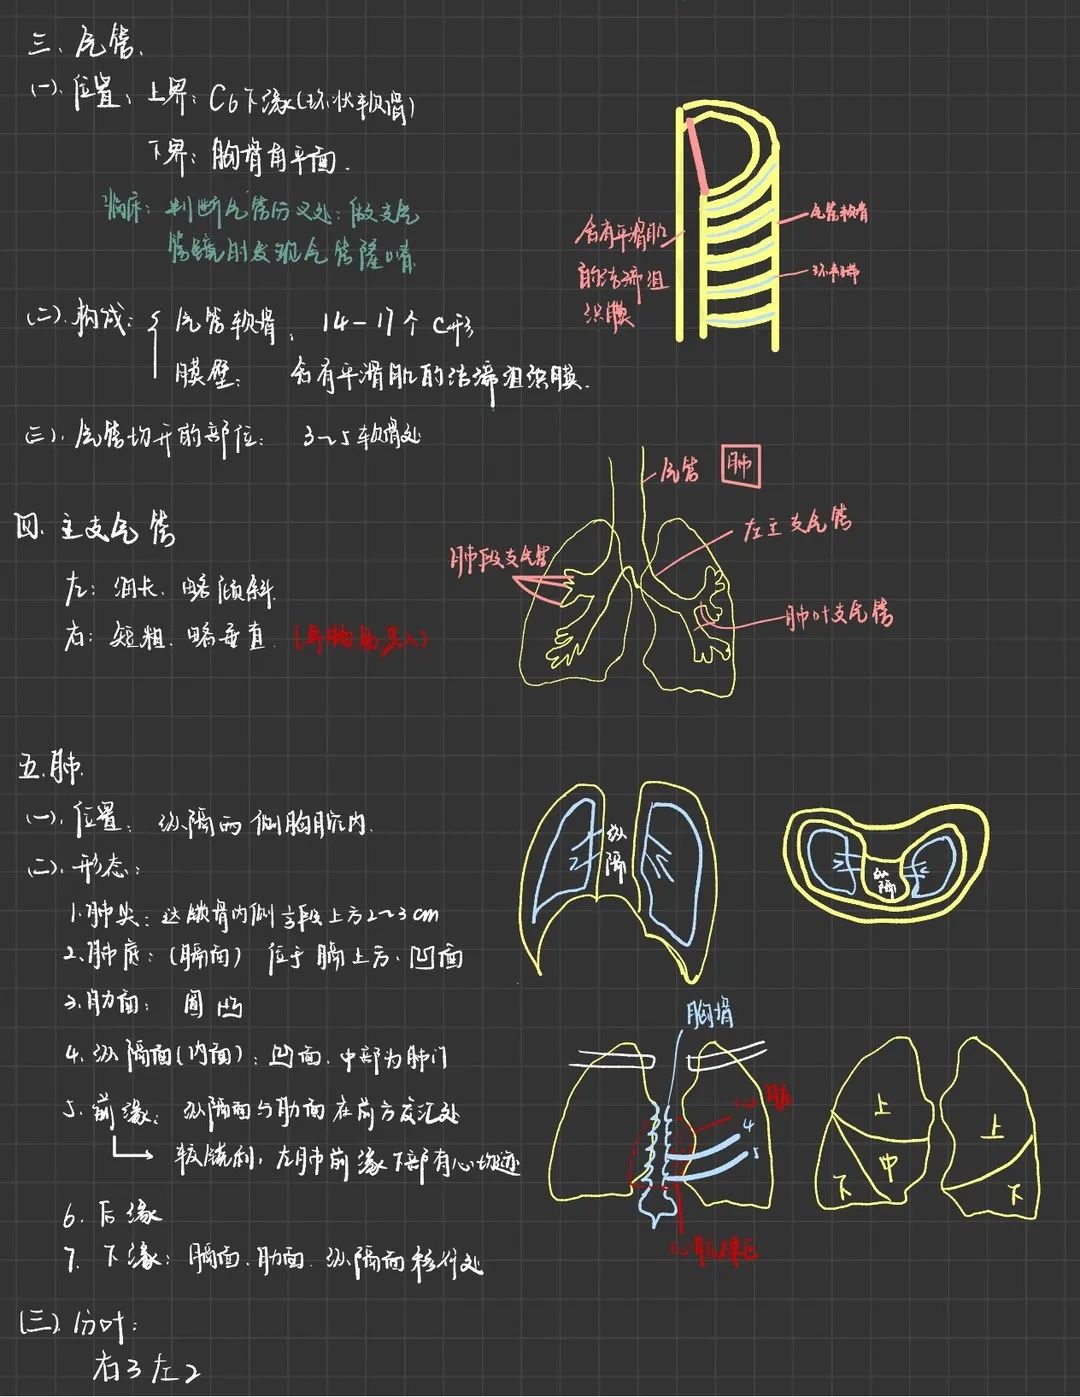 三、气管.
(一).位置、上界：C6下缘(环状软骨)
下界：胸骨角平面.
临床：判断气管分叉处：做支气
管镜时发现气管隆嵴
(二).构成：气管软骨、14-17个 C形
膜壁： 含有平滑肌的结缔组织膜.
(三).气管切开的部位： 3~5软骨处
含有平滑肌
的结缔组
织膜
气管软骨
环韧带
四.主支气管
左：细长.略倾斜.
右：短粗.略垂直.(异物易坠入)
气管
肺
左主支气管
肺段支气管
肺叶支气管
五.肺.
(一).位置：纵隔两侧胸腔内.
(二).形态：
1.肺尖：达锁骨内侧 段上方2~3cm
2.肺底：(膈面) 位于膈上方.凹面
3.肋面：圆凸
4.纵隔面(内面)：凹面.中部为肺门
5.前缘：纵隔面与肋面在前方交汇处
较锐利，左肺前缘下部有心切迹
6.后缘
7.下缘：膈面.肋面.纵隔面移行处
(三).分叶：
右3左2
纵
隔
纵
隔
胸骨
4
5
心
上
中
下
上
下